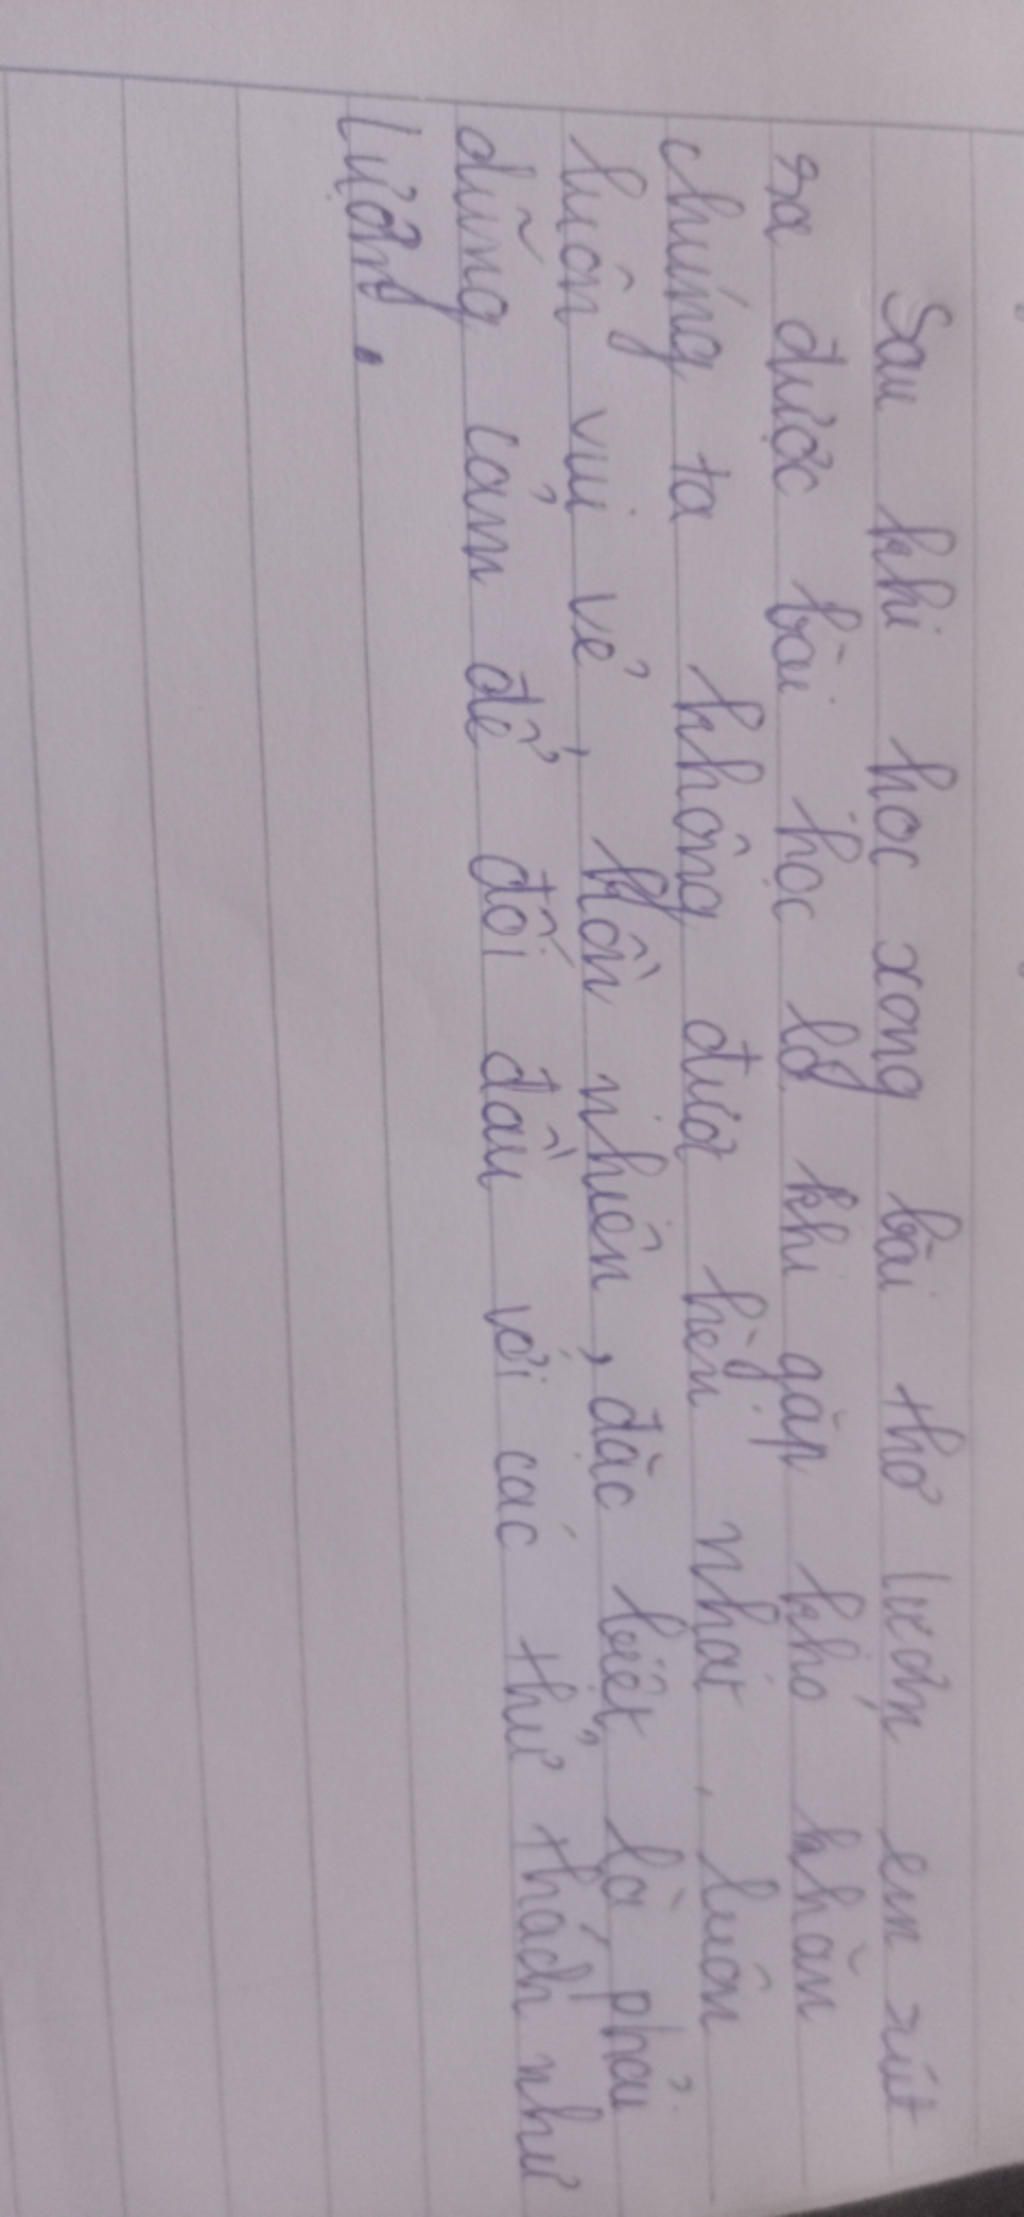 Sau khi học xong bài thơ lượm em rút
ra được bài học là khi gặp khó khăn
chúng ta không được hèn nhát, luôn
luôn vui vẻ, hồn nhiên, đặc biệt là phải
dũng cảm để đối đầu với các thử thách như
Lượm.